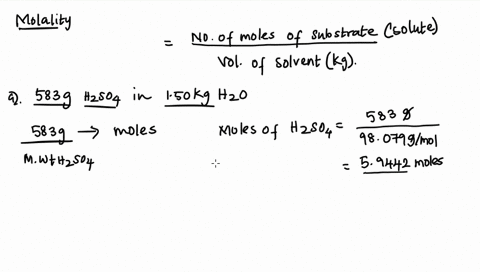 Molality
= No. of moles of substrate (solute)
Vol. of solvent (kg).
a). 583g H2SO4 in 1.50kg H2O
583g → moles
M.Wt H2SO4
Moles of H2SO4 = 583 g
98.079g/mol
= 5.9442 moles